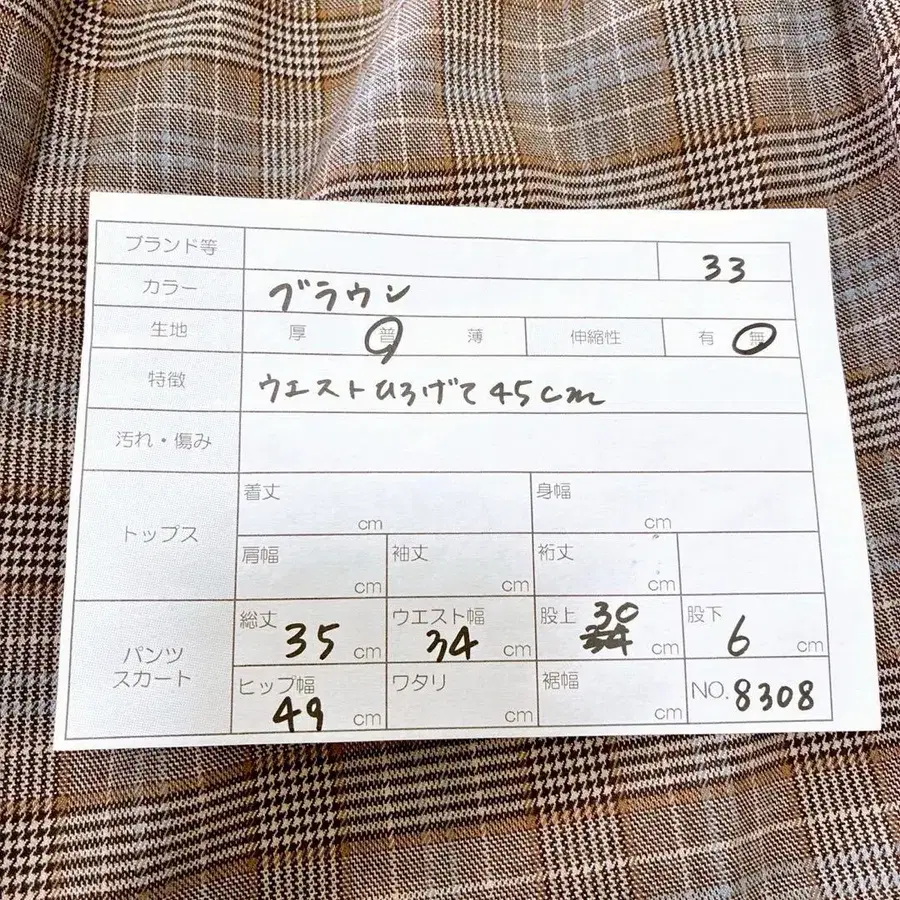 ブランド等 33
カラー ブラウン
生地 厚 普 薄 伸縮性 有 無
特徴 ウエストひろげて45cm
汚れ・傷み
トップス
着丈 cm 身幅 cm
肩幅 cm 袖丈 cm 裄丈 cm
パンツ
スカート
総丈 35 cm ウエスト幅 34 cm 股上 30 34 cm 股下 6 cm
ヒップ幅 49 cm ワタリ cm 裾幅 cm NO.8308